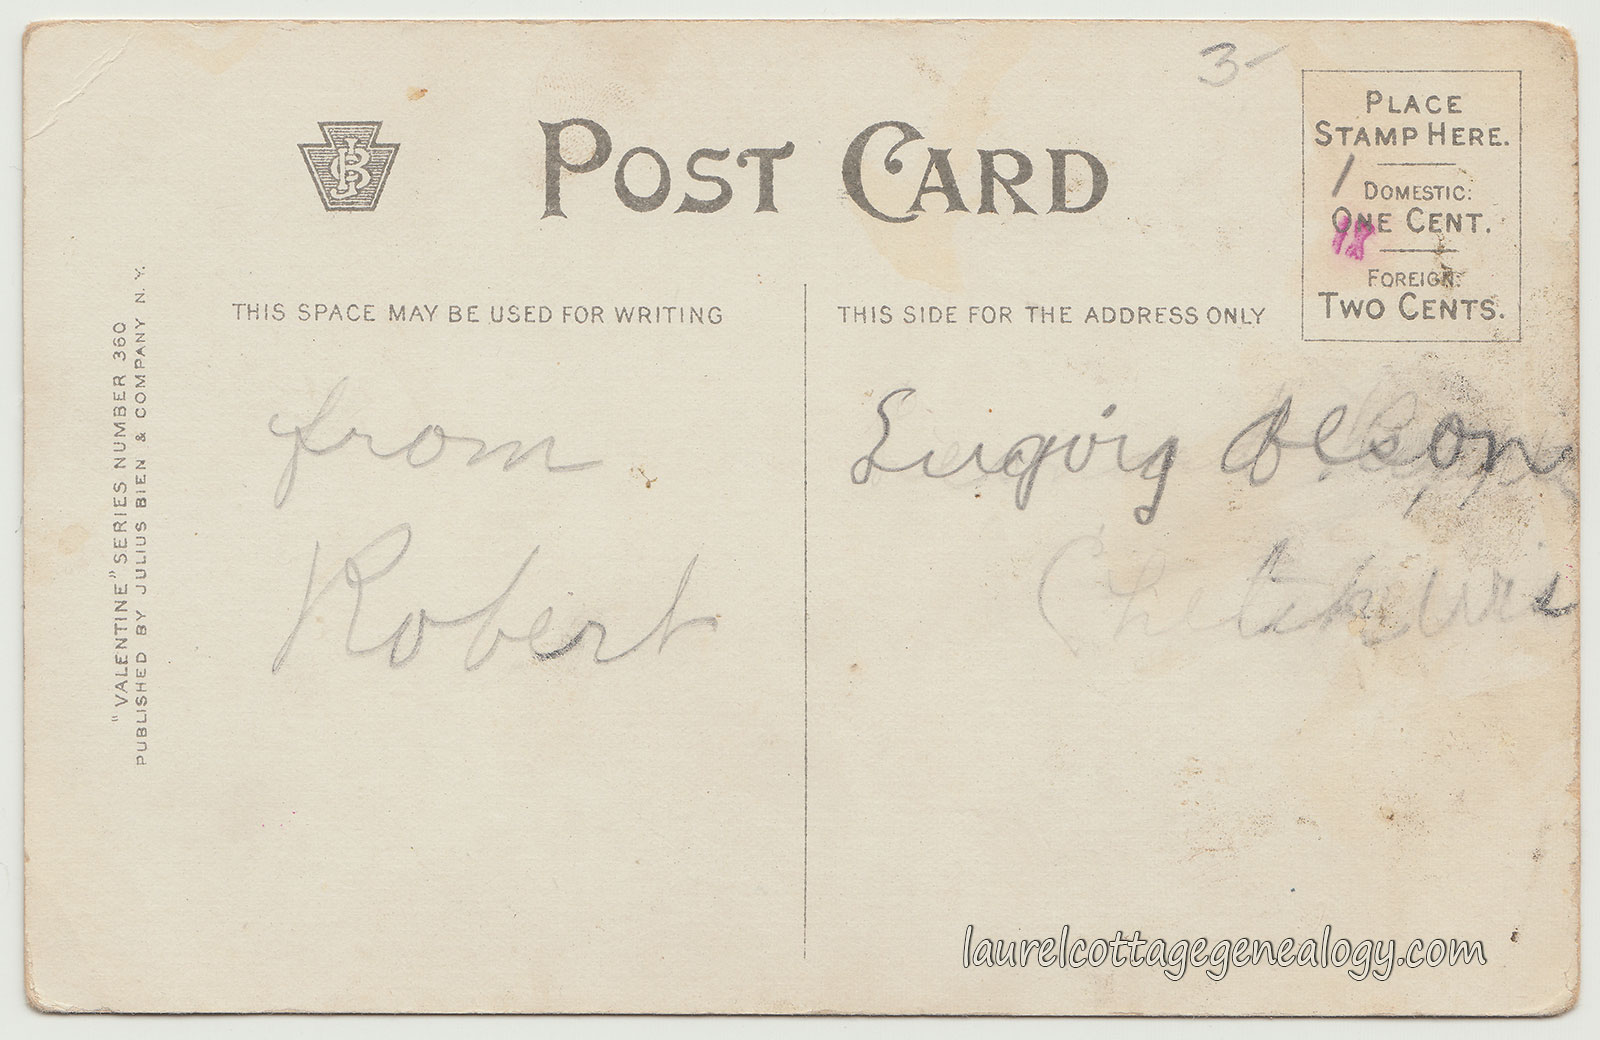 3-
POST CARD
PLACE
STAMP HERE.
1
DOMESTIC:
ONE CENT.
18
FOREIGN:
TWO CENTS.
THIS SPACE MAY BE USED FOR WRITING
THIS SIDE FOR THE ADDRESS ONLY
"VALENTINE" SERIES NUMBER 360
PUBLISHED BY JULIUS BIEN & COMPANY N.Y.
from
Robert
Olson
Chetek Wis
laurelcottagegenealogy.com